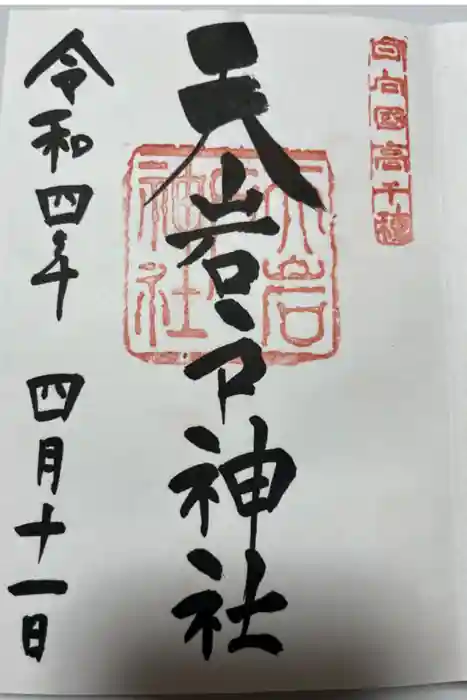 日向國高千穂
天岩戸神社
天岩戸神社
令和四年 四月十一日